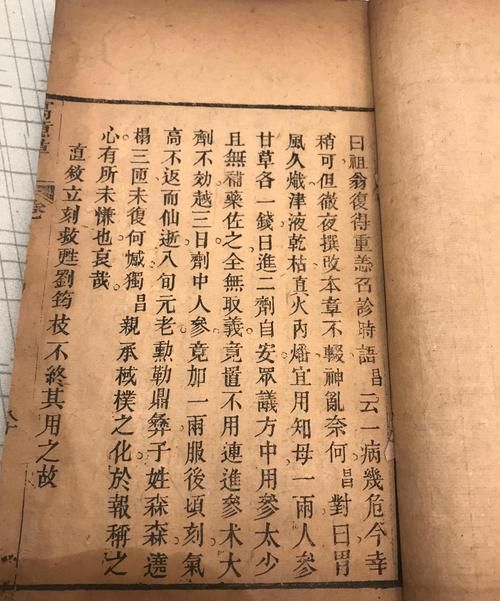 曰祖翁復得重恙召診時語昌云一病幾危今幸
稍可但徹夜撰改本章不輟神亂奈何昌對曰胃
風久熾津液乾枯直火內燔宜用知母一兩人參
甘草各一錢日進二劑自安眾議方中用參太少
且無補藥佐之全無取義竟置不用連進參术大
劑不効越三日劑中人參竟加一兩服後頃刻氣
高不返而仙逝八旬元老勳勒鼎彝子姓森森遶
榻三匝未復何憾獨昌親承棫樸之化於報稱之
心有所未慊也哀哉
直敘立刻救甦劉筠枝不終其用之故
寓意草